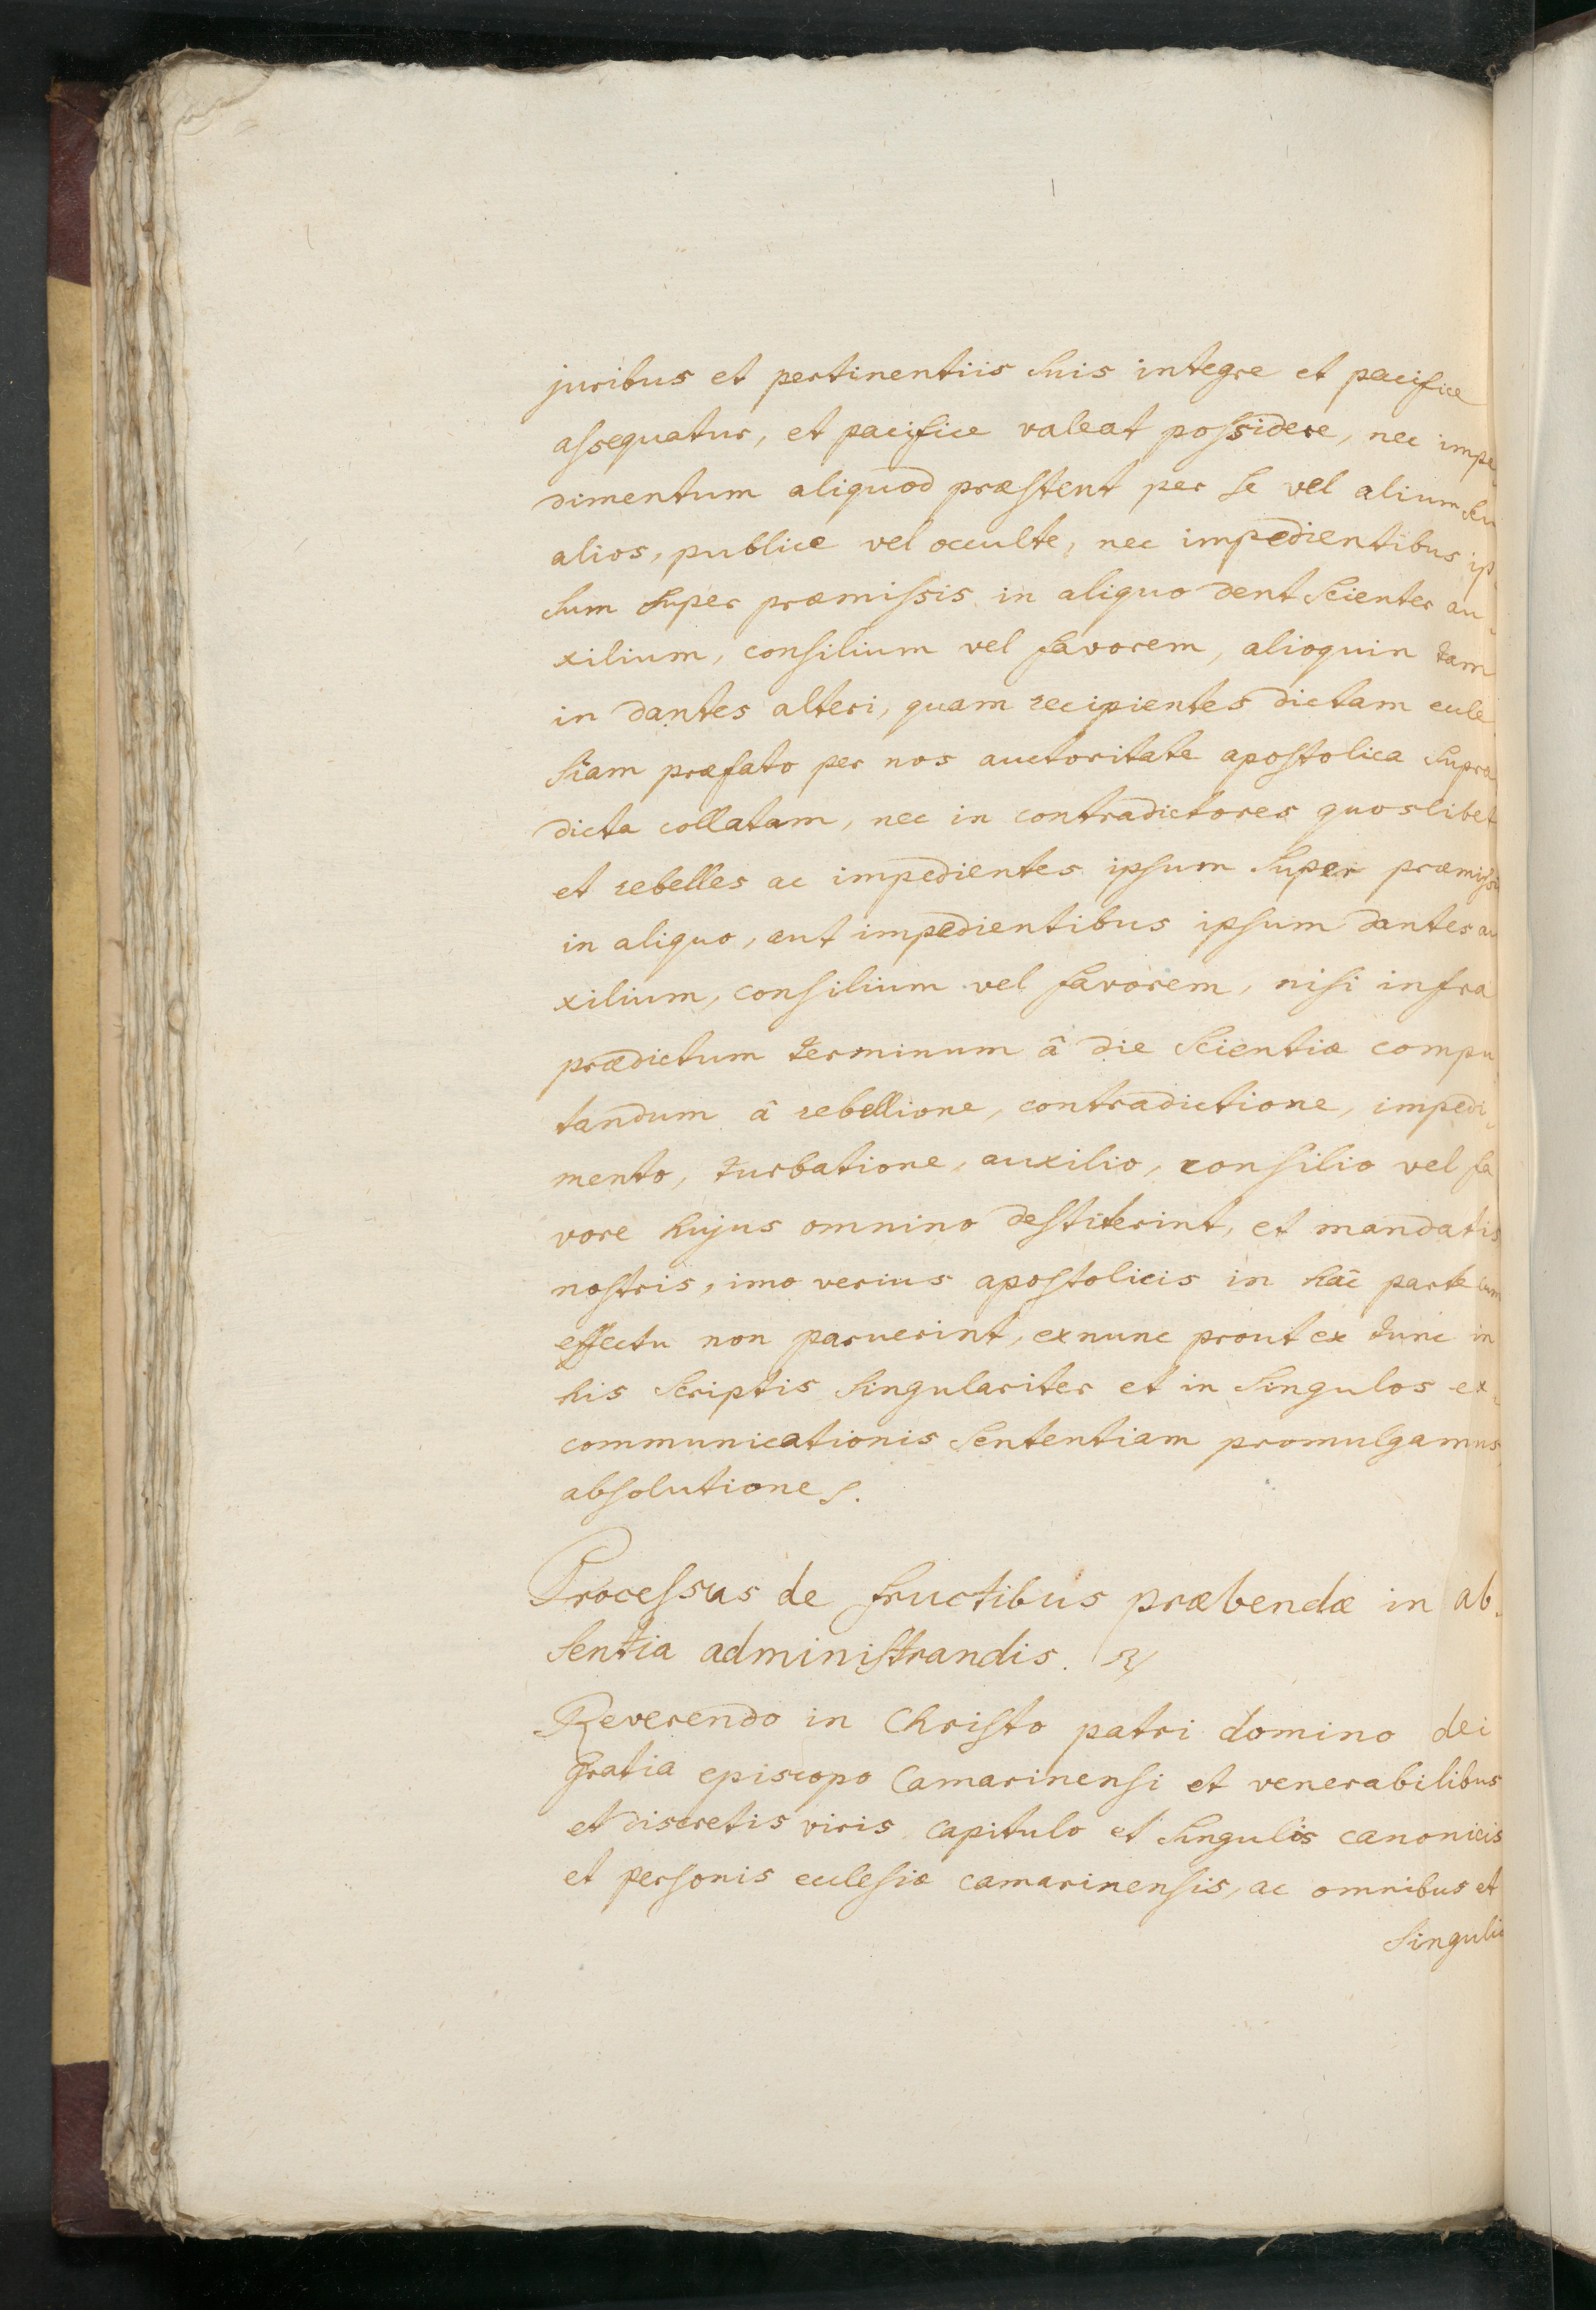 juribus et pertinentiis suis integre et pacifice
assequatur, et pacifice valeat possidere, nec impe
dimentum aliquod præstent per se vel alium seu
alios, publice vel occulte, nec impedientibus ip-
sum super præmissis in aliquo dent scienter au-
xilium, consilium vel favorem, alioquin tam
in dantes alteri, quam recipientes dictam eccle
siam præfato per nos auctoritate apostolica supra
dicta collatam, nec in contradictores quoslibet
et rebelles ac impedientes ipsum super præmissis
in aliquo, aut impedientibus ipsum dantes au
xilium, consilium vel favorem, nisi infra
prædictum terminum â die scientiæ compu
tandum â rebellione, contradictione, impedi-
mento, turbatione, auxilio, consilio vel fa
vore hujus omnino destiterint, et mandatis
nostris, imo verius apostolicis in hâc parte cum
effectu non paruerint, exnunc prout ex tunc in
his scriptis singulariter et in singulos ex-
communicationis sententiam promulgamus
absolutiones.
Processus de fructibus præbendæ in ab-
sentia administrandis.
Reverendo in Christo patri domino dei
gratia episcopo Camarinensi et venerabilibus
et discretis viris capitulo et singulis canonicis
et personis ecclesiæ camarinensis, ac omnibus et
singulis